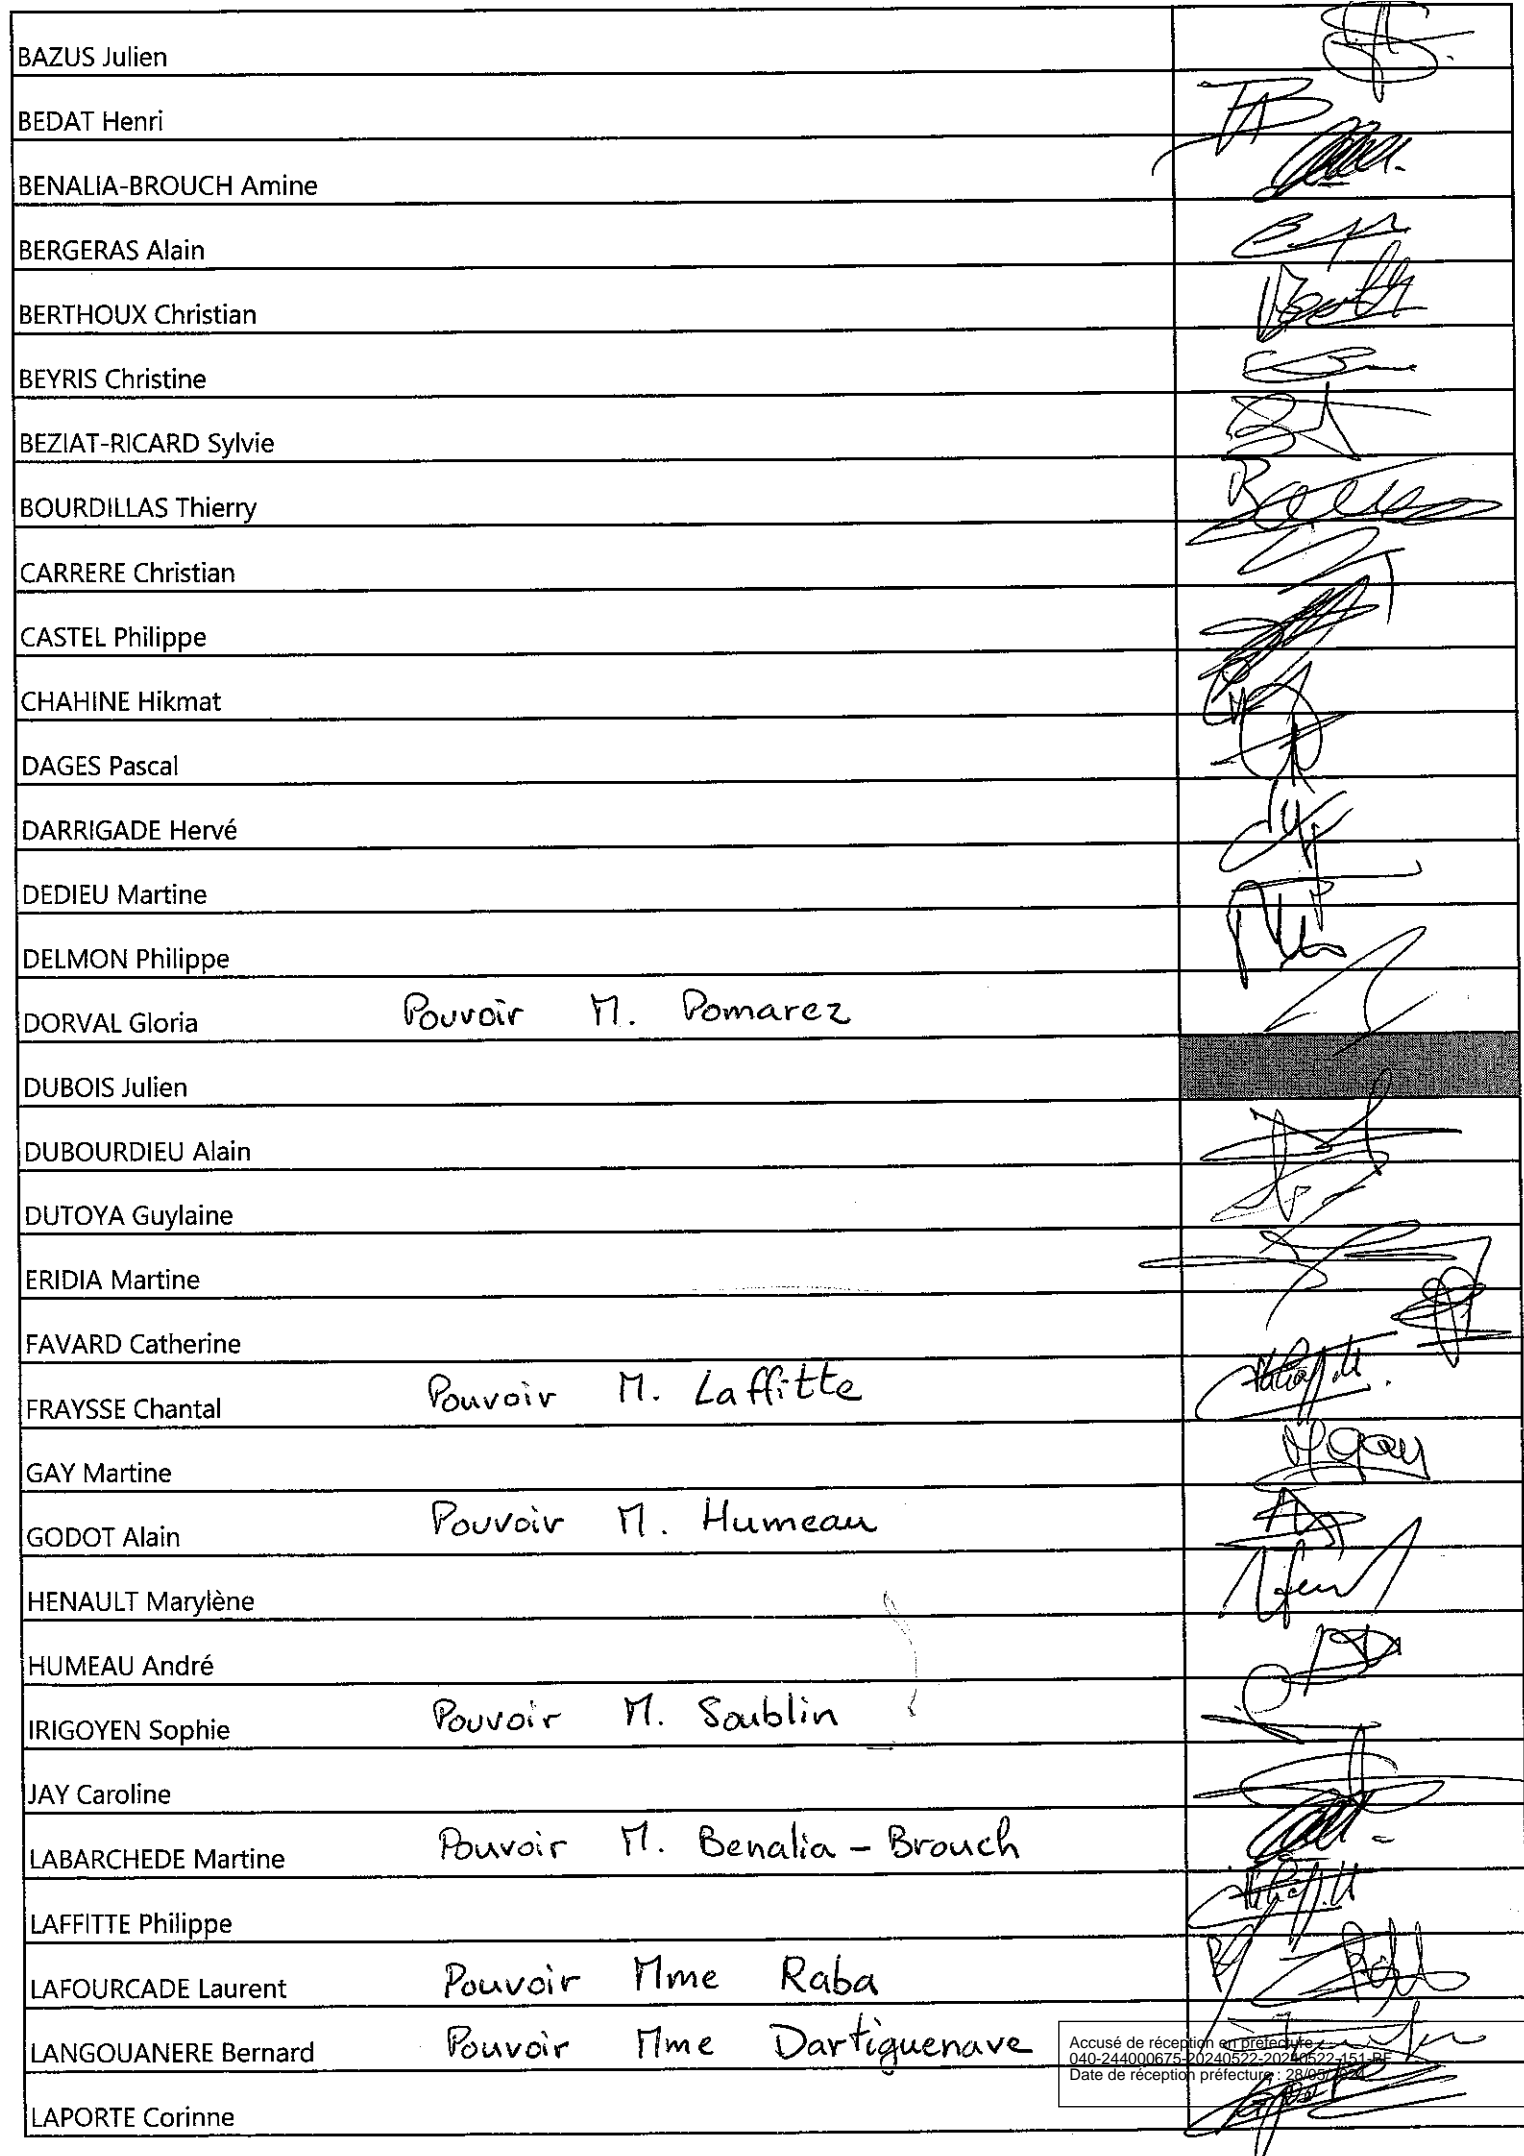 BAZUS Julien
BEDAT Henri
BENALIA-BROUCH Amine
BERGERAS Alain
BERTHOUX Christian
BEYRIS Christine
BEZIAT-RICARD Sylvie
BOURDILLAS Thierry
CARRERE Christian
CASTEL Philippe
CHAHINE Hikmat
DAGES Pascal
DARRIGADE Hervé
DEDIEU Martine
DELMON Philippe
DORVAL Gloria Pouvoir M. Pomarez
DUBOIS Julien
DUBOURDIEU Alain
DUTOYA Guylaine
ERIDIA Martine
FAVARD Catherine
FRAYSSE Chantal Pouvoir M. Laffitte
GAY Martine Mgay
GODOT Alain Pouvoir M. Humeau
HENAULT Marylène
HUMEAU André
IRIGOYEN Sophie Pouvoir M. Soublin
JAY Caroline
LABARCHEDE Martine Pouvoir M. Benalia - Brouch
LAFFITTE Philippe
LAFOURCADE Laurent Pouvoir Mme Raba
LANGOUANERE Bernard Pouvoir Mme Dartiguenave
Accusé de réception en préfecture
040-244000675-20240522-20240522-151-BF
Date de réception préfecture : 28/05/2024
LAPORTE Corinne